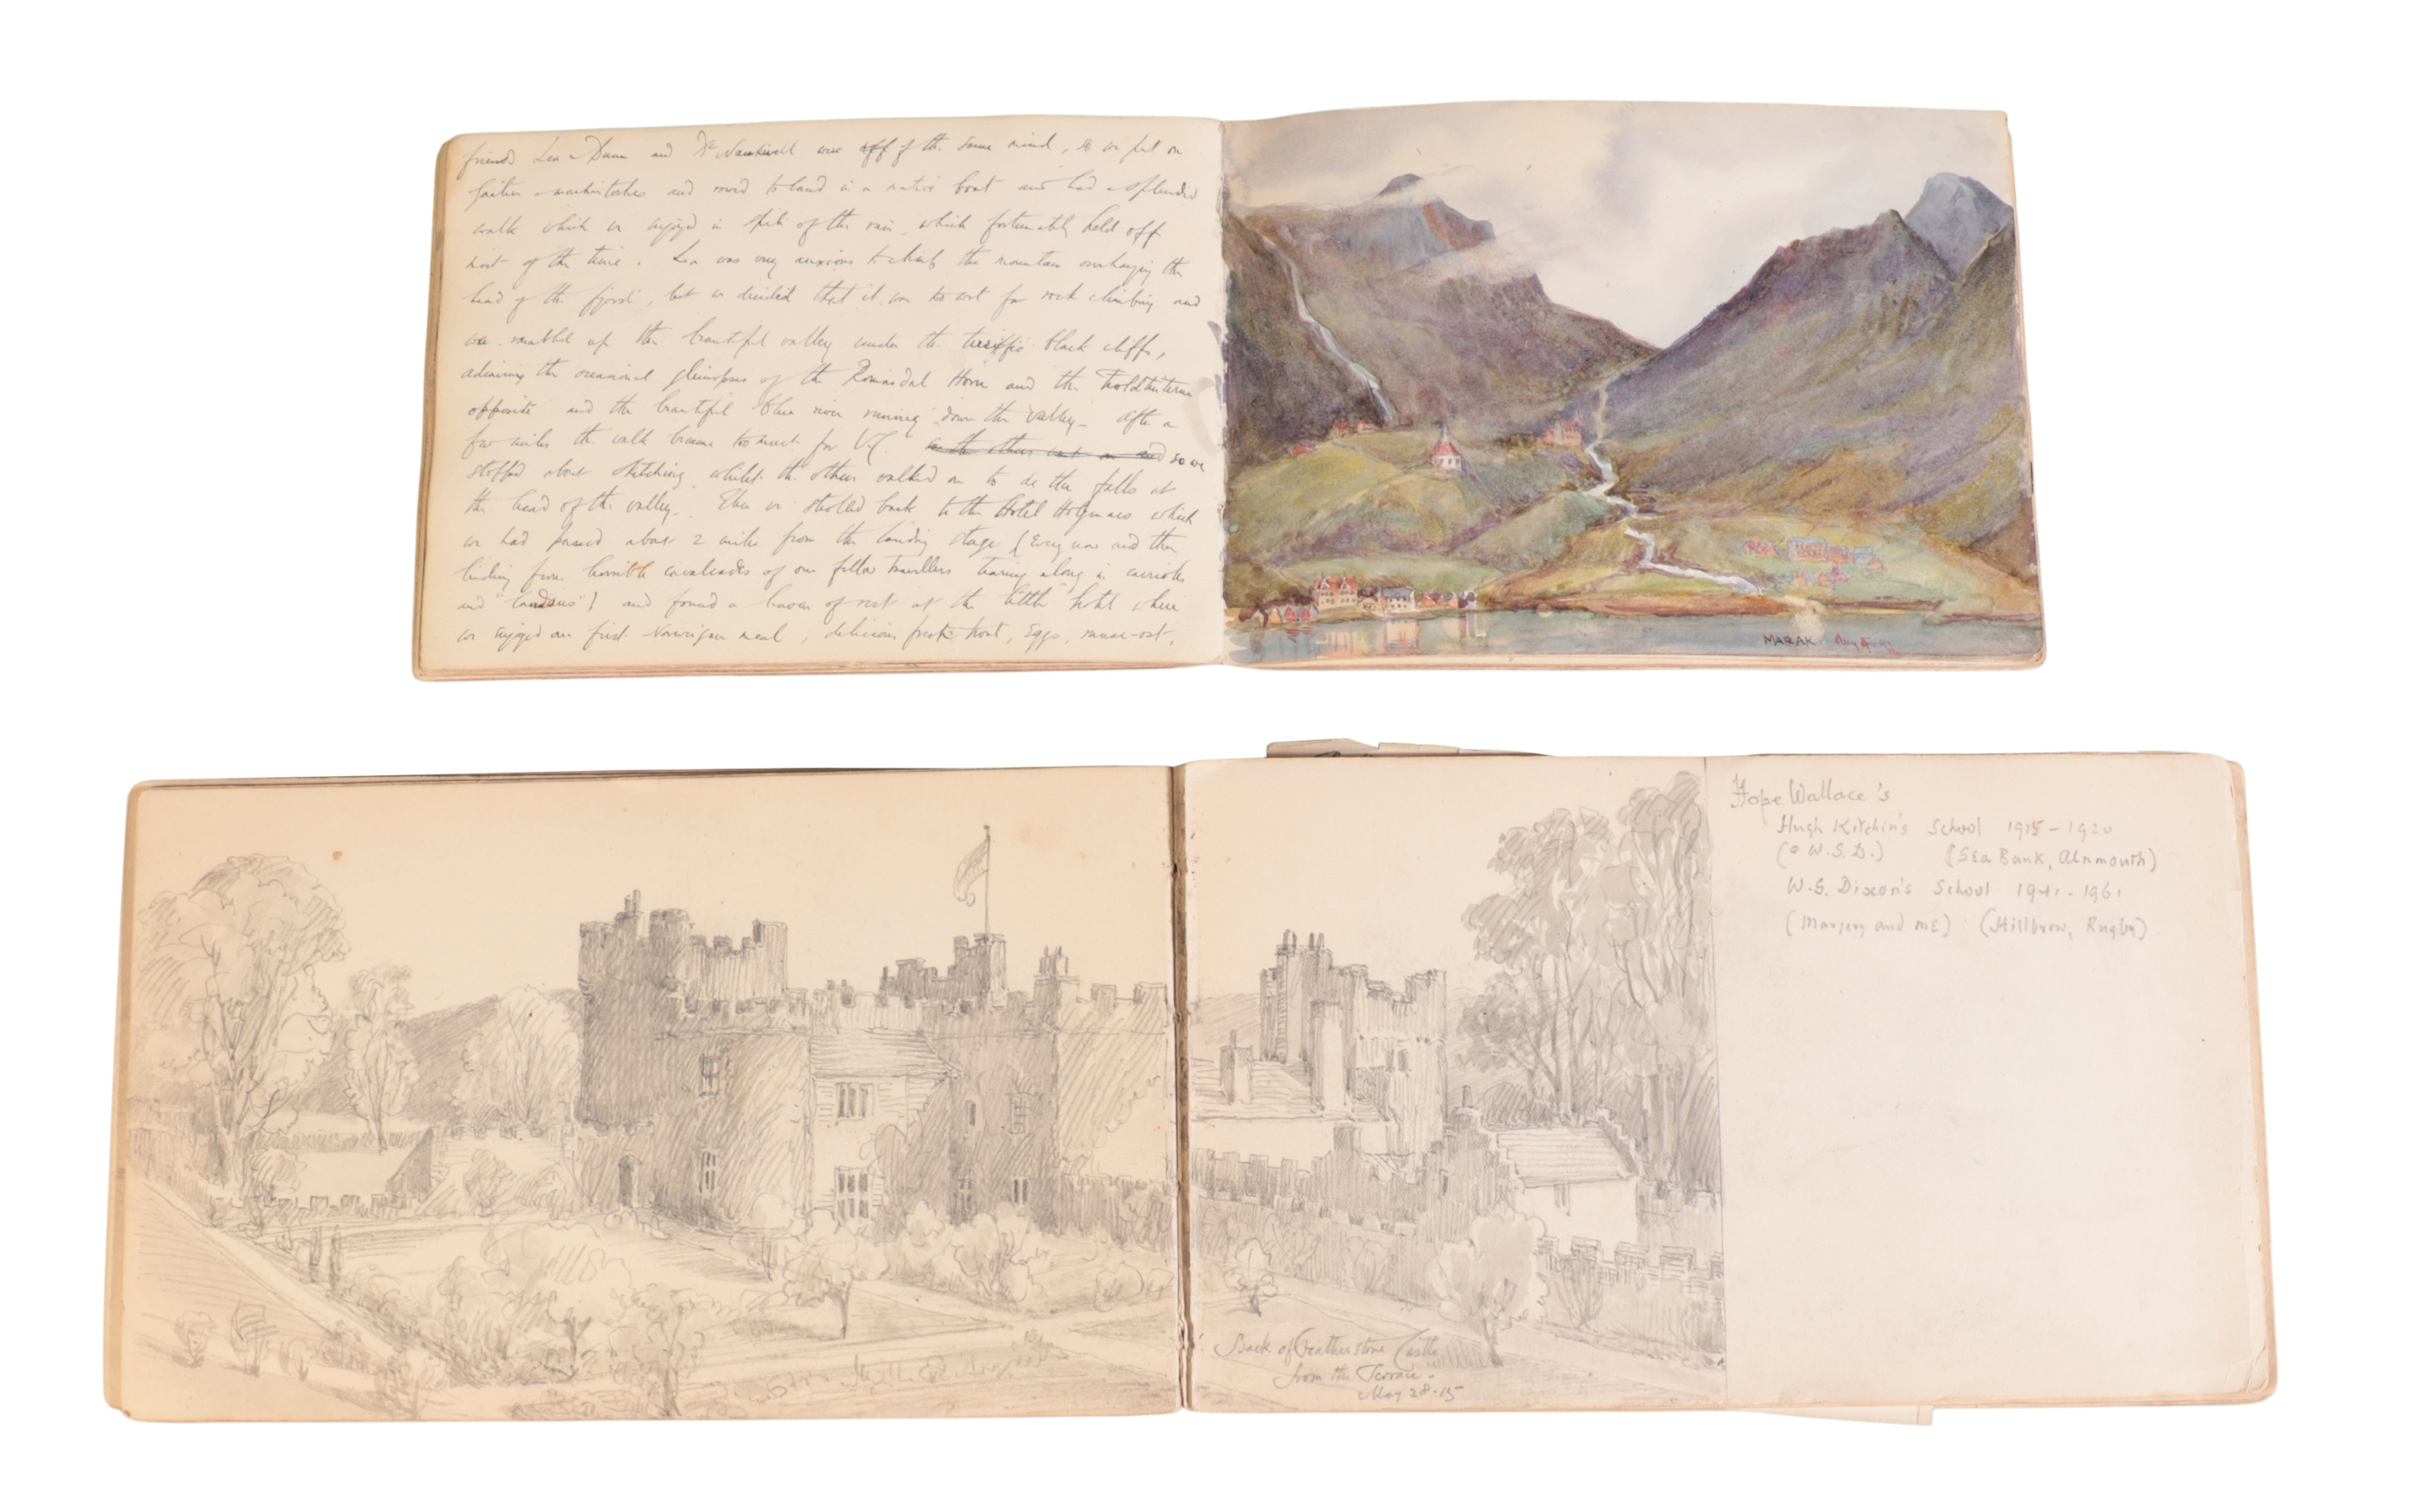 friends Lea & Dunn and Dr Nankivell were off of the same mind, so we put on
gaiters & mackintoshes and rowed to land in a native boat and had a splendid
walk which we enjoyed in spite of the rain, which fortunately held off
most of the time. Lea was very anxious to climb the mountain overhanging the
head of the fjord, but we decided that it was too wet for rock climbing and
we rambled up the beautiful valley under the terrific black cliffs,
admiring the occasional glimpses of the Romasdal Horn and the Troldtinterne
opposite and the beautiful blue river running down the valley – After a
few miles the walk became too much for V.C. so we
stopped about sketching whilst the others walked on to see the falls at
the head of the valley – Then we strolled back to the Hotel which
we had passed about 2 miles from the landing stage (Every now and then
hiding from horrible cavalcades of our fellow travellers tearing along in carrioles
and "landaus") and found a haven of rest at the little hotel where
we enjoyed our first Norwegian meal, delicious fresh trout, eggs, ost,
MARAK. Aug
Hope Wallace's
Hugh Kitchin's School 1915 – 1920
(& W.S.D.) (Sea Bank, Alnmouth)
W.S. Dixon's School 1941 - 1961
(Margery and me) (Hillbrow, Rugby)
Back of Featherstone Castle
from the Terrace –
May 28 · 15